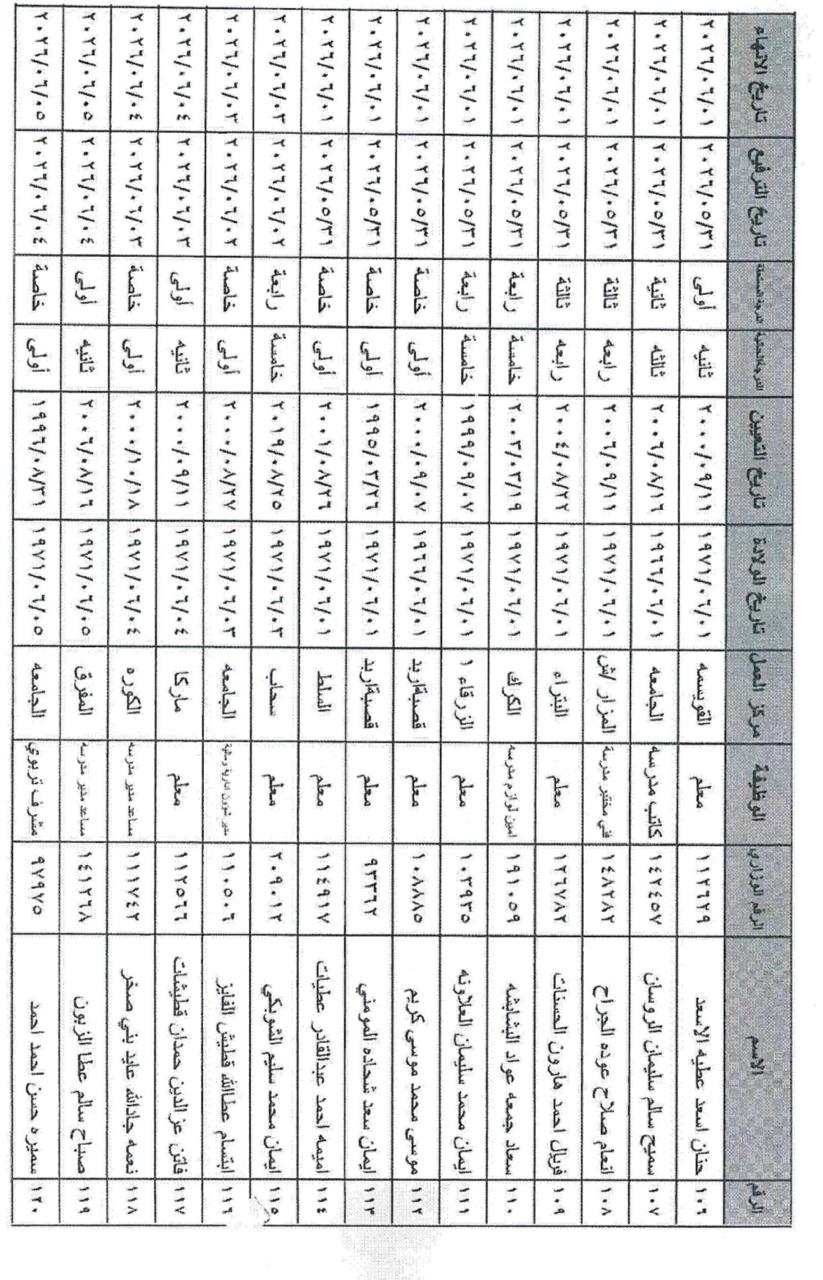 الرقم الاسم الرقم الوزاري الوظيفة مركز العمل تاريخ الولادة تاريخ التعيين الدرجة الحالية الدرجة المستحقة تاريخ الترفيع تاريخ الانهاء
١٠٦ حنان اسعد عطيه الاسعد ١١٢٦٢٩ معلم القويسمه ١٩٧١/٠٦/٠١ ٢٠٠٠/٠٩/١١ ثانيه أولى ٢٠٢٦/٠٥/٣١ ٢٠٢٦/٠٦/٠١
١٠٧ سميح سالم سليمان الروسان ١٤٢٤٥٧ كاتب مدرسه الجامعه ١٩٦٦/٠٦/٠١ ٢٠٠٦/٠٨/١٦ ثالثه ثانية ٢٠٢٦/٠٥/٣١ ٢٠٢٦/٠٦/٠١
١٠٨ انعام صلاح عوده الجراح ١٤٨٢٨٢ فني مختبر مدرسة المزار /ش ١٩٧١/٠٦/٠١ ٢٠٠٦/٠٩/١١ رابعه ثالثة ٢٠٢٦/٠٥/٣١ ٢٠٢٦/٠٦/٠١
١٠٩ فريال احمد هارون الحسنات ١٢٦٧٨٢ معلم البتراء ١٩٧١/٠٦/٠١ ٢٠٠٤/٠٨/٢٢ رابعه ثالثة ٢٠٢٦/٠٥/٣١ ٢٠٢٦/٠٦/٠١
١١٠ سعاد جمعه عواد البشابشه ١٩١٠٥٩ امين لوازم مدرسه الكرك ١٩٧١/٠٦/٠١ ٢٠٠٣/٠٣/١٩ خامسة رابعة ٢٠٢٦/٠٥/٣١ ٢٠٢٦/٠٦/٠١
١١١ ايمان محمد سليمان العلاونه ١٠٣٩٣٥ معلم الزرقاء ١ ١٩٧١/٠٦/٠١ ١٩٩٩/٠٩/٠٧ خامسة رابعة ٢٠٢٦/٠٥/٣١ ٢٠٢٦/٠٦/٠١
١١٢ موسى محمد موسى كريم ١٠٨٨٨٥ معلم قصبةاربد ١٩٦٦/٠٦/٠١ ٢٠٠٠/٠٩/٠٧ أولى خاصة ٢٠٢٦/٠٥/٣١ ٢٠٢٦/٠٦/٠١
١١٣ ايمان سعد شحاده المومني ٩٣٣٦٢ معلم قصبةاربد ١٩٧١/٠٦/٠١ ١٩٩٥/٠٣/٢٦ أولى خاصة ٢٠٢٦/٠٥/٣١ ٢٠٢٦/٠٦/٠١
١١٤ اميمه احمد عبدالقادر عطيات ١١٤٩١٧ معلم السلط ١٩٧١/٠٦/٠١ ٢٠٠١/٠٨/٢٦ أولى خاصة ٢٠٢٦/٠٥/٣١ ٢٠٢٦/٠٦/٠١
١١٥ ايمان محمد سليم الشوبكي ٢٠٩٠١٢ معلم سحاب ١٩٧١/٠٦/٠٣ ٢٠١٩/٠٨/٢٥ خامسة رابعة ٢٠٢٦/٠٦/٠٢ ٢٠٢٦/٠٦/٠٣
١١٦ ابتسام عطاالله قطيش الفايز ١١٠٥٠٦ مدير شؤون ادارية ومالية الجامعه ١٩٧١/٠٦/٠٣ ٢٠٠٠/٠٨/٢٧ أولى خاصة ٢٠٢٦/٠٦/٠٢ ٢٠٢٦/٠٦/٠٣
١١٧ فاتن عز الدين حمدان قطيشات ١١٢٥٦٦ معلم ماركا ١٩٧١/٠٦/٠٤ ٢٠٠٠/٠٩/١١ ثانيه أولى ٢٠٢٦/٠٦/٠٣ ٢٠٢٦/٠٦/٠٤
١١٨ نعمه جادالله عايد بني صخر ١١١٧٤٢ مساعد مدير مدرسه الكوره ١٩٧١/٠٦/٠٤ ٢٠٠٠/١٠/١٨ أولى خاصة ٢٠٢٦/٠٦/٠٣ ٢٠٢٦/٠٦/٠٤
١١٩ صباح سالم عطا الزبون ١٤١٢٦٨ مساعد مدير مدرسه المفرق ١٩٧١/٠٦/٠٥ ٢٠٠٦/٠٨/١٦ ثانيه أولى ٢٠٢٦/٠٦/٠٤ ٢٠٢٦/٠٦/٠٥
١٢٠ سميره حسن احمد احمد ٩٧٩٧٥ مشرف تربوي الجامعه ١٩٧١/٠٦/٠٥ ١٩٩٦/٠٨/٣١ أولى خاصة ٢٠٢٦/٠٦/٠٤ ٢٠٢٦/٠٦/٠٥